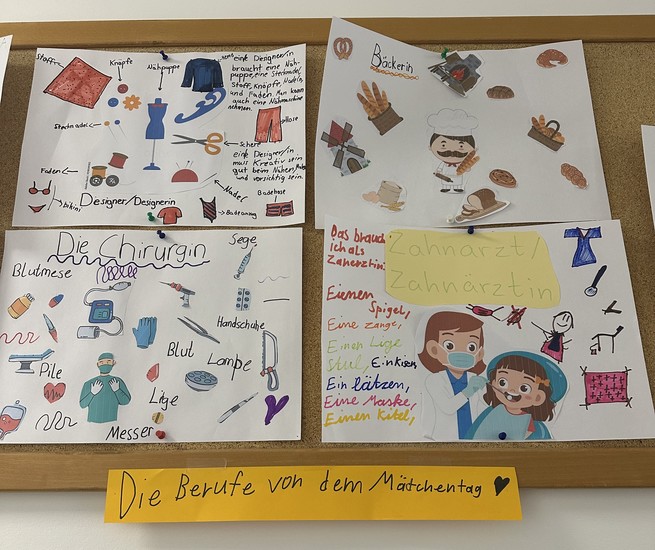 Stoff
Knöpfe
Nähpuppe
eine Designer/in
braucht eine Näh-
puppe, eine Stecknadel,
Stoff, Knöpfe, Nadeln,
und Faden. Man kann
auch eine Nähmaschine
nehmen.
Hose
Stecknadel
Schere
eine Designer/in
muss Kreativ sein
gut beim Nähen,
und vorsichtig sein.
Faden
Nadel
Bikini
Designer/Designerin
Badeanzug
Badehose
Bäckerin
Die Chirurgin
Sege
Blutmese
Handschuhe
Blut
Lampe
Pile
Lige
Messer
Das brauch
ich als
Zanerztin:
Zahnarzt/
Zahnärztin
Eienen
Spigel,
Eine zange,
Einen Lige
Stul, Ein kisen,
Ein lätzen,
Eine Maske,
Einen Kitel,
Die Berufe von dem Mädchentag ♥